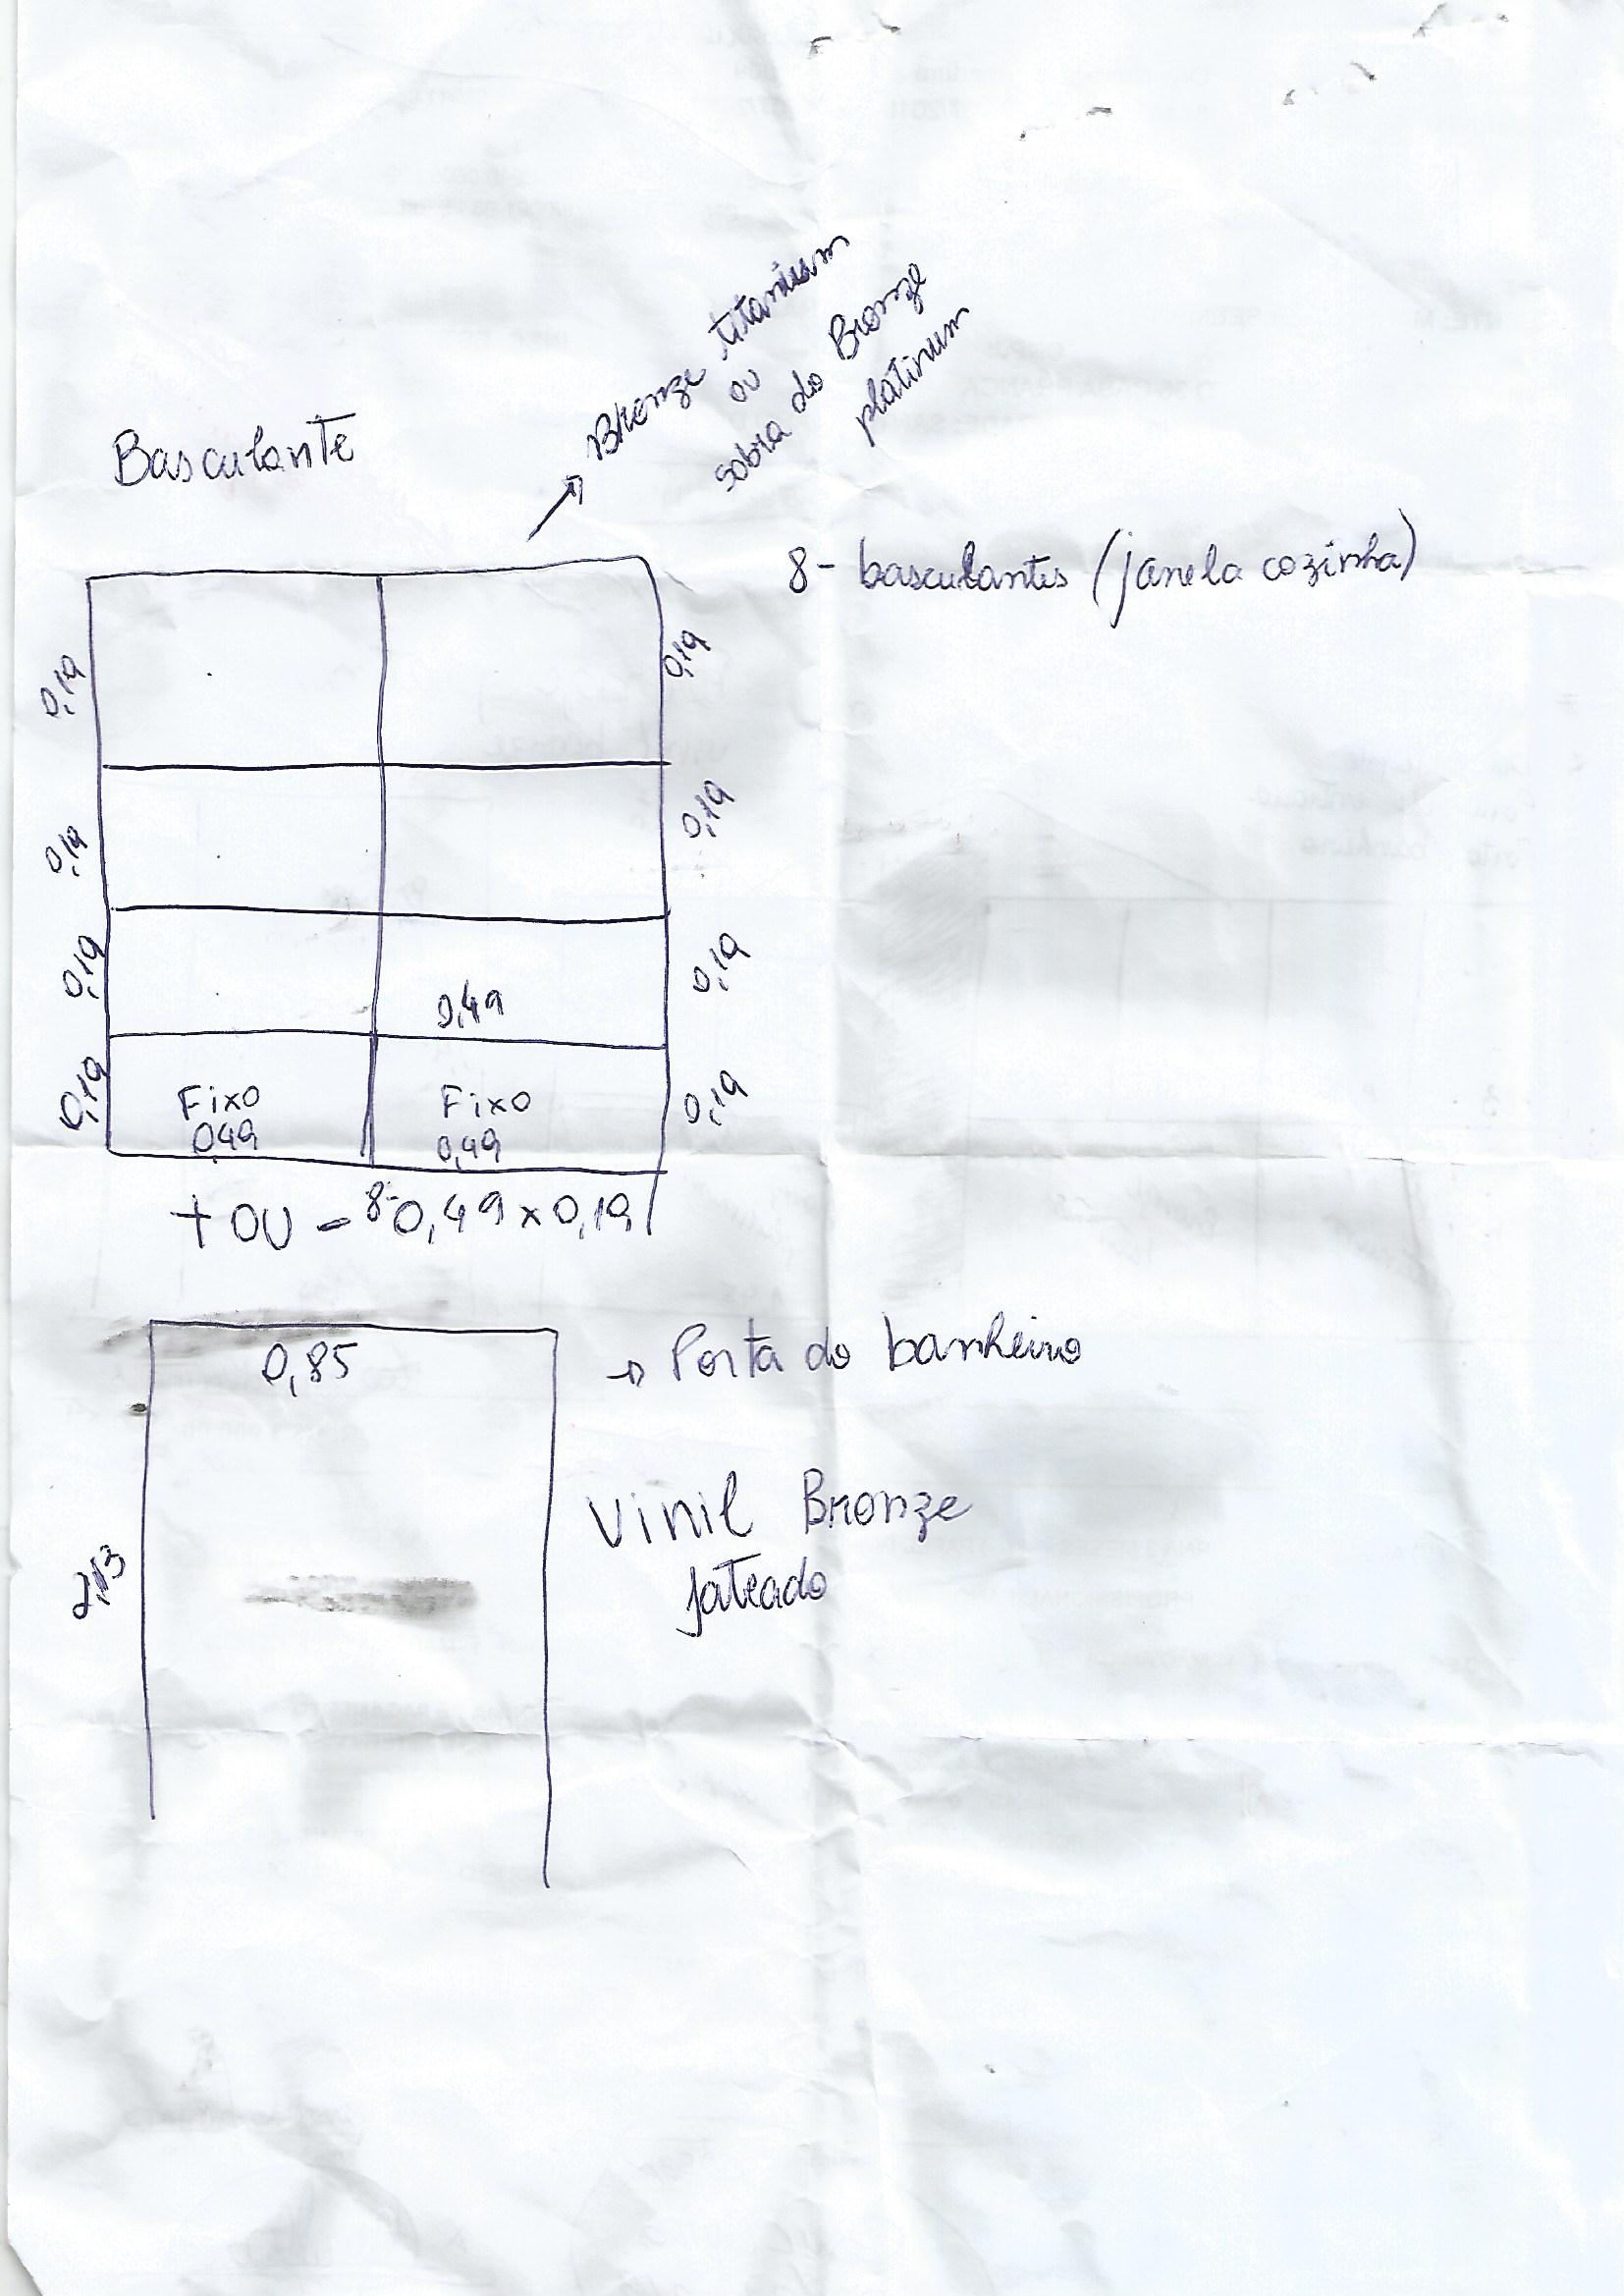 Bronze titanium
ou
sobra do Bronze
platinum
Basculante
8- basculantes (janela cozinha)
0,19
0,19
0,19
0,19
0,19
0,19
0,49
0,19
0,19
Fixo
0,49
Fixo
0,49
+ ou - 8- 0,49 x 0,19
0,85
Porta do banheiro
Vinil Bronze
jateado
2,13